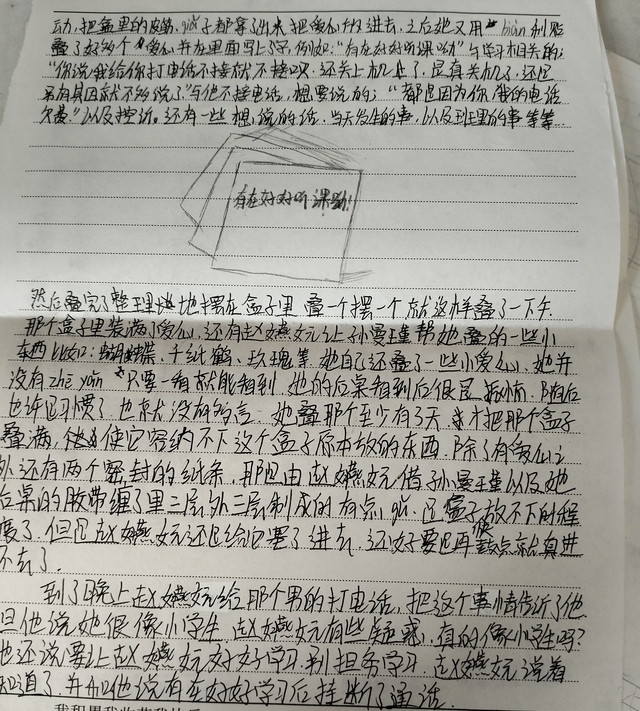 动,把盒里的皮筋,夹子都拿了出来把爱心放进去.之后她又用 biàn利贴
叠了好多个爱心并在里面写上了字,例如:"有在好好听课呦"与学习相关的;
"你说我给你打电话不接就不接呗.还关上机了.是真关机了.还是
另有其因就不多说了"与他不接电话,想要说的;"都是因为你,我的电话
欠费."以及控诉.还有一些想说的话.当天发生的事,以及班里的事等等.
有在好好听课呦!
然后叠完了整理地摆在盒子里 叠一个摆一个 就这样叠了一下午
那个盒子里装满了爱心.还有赵嬿妧让孙曼瑾帮她叠的一些小
东西比如:蝴蝶.千纸鹤.玫瑰等.她自己还叠了一些小爱心.她并
没有zhē yǎn 只要一看就能看到.她的后桌看到后很是 随后
也许习惯了也就没有多言.她叠那个至少有了3天.才把那个盒子
叠满.使它容纳不下这个盒子原本放的东西.除了有爱心之
外还有两个密封的纸条.那是由赵嬿妧借孙曼瑾以及她
后桌的胶带缠了里三层外三层制成的有点 是盒子放不下的程
度了.但是赵嬿妧还是给它塞了进去.还好要是再 点就真进
不去了.
到了晚上赵嬿妧给那个男的打电话,把这个事情告诉了他
但他说她很像小学生.赵嬿妧有些疑惑.真的像小学生吗?
他还说要让赵嬿妧好好学习.别担务学习.赵嬿妧说着
知道了.并和他说有在好好学习后挂断了通话.